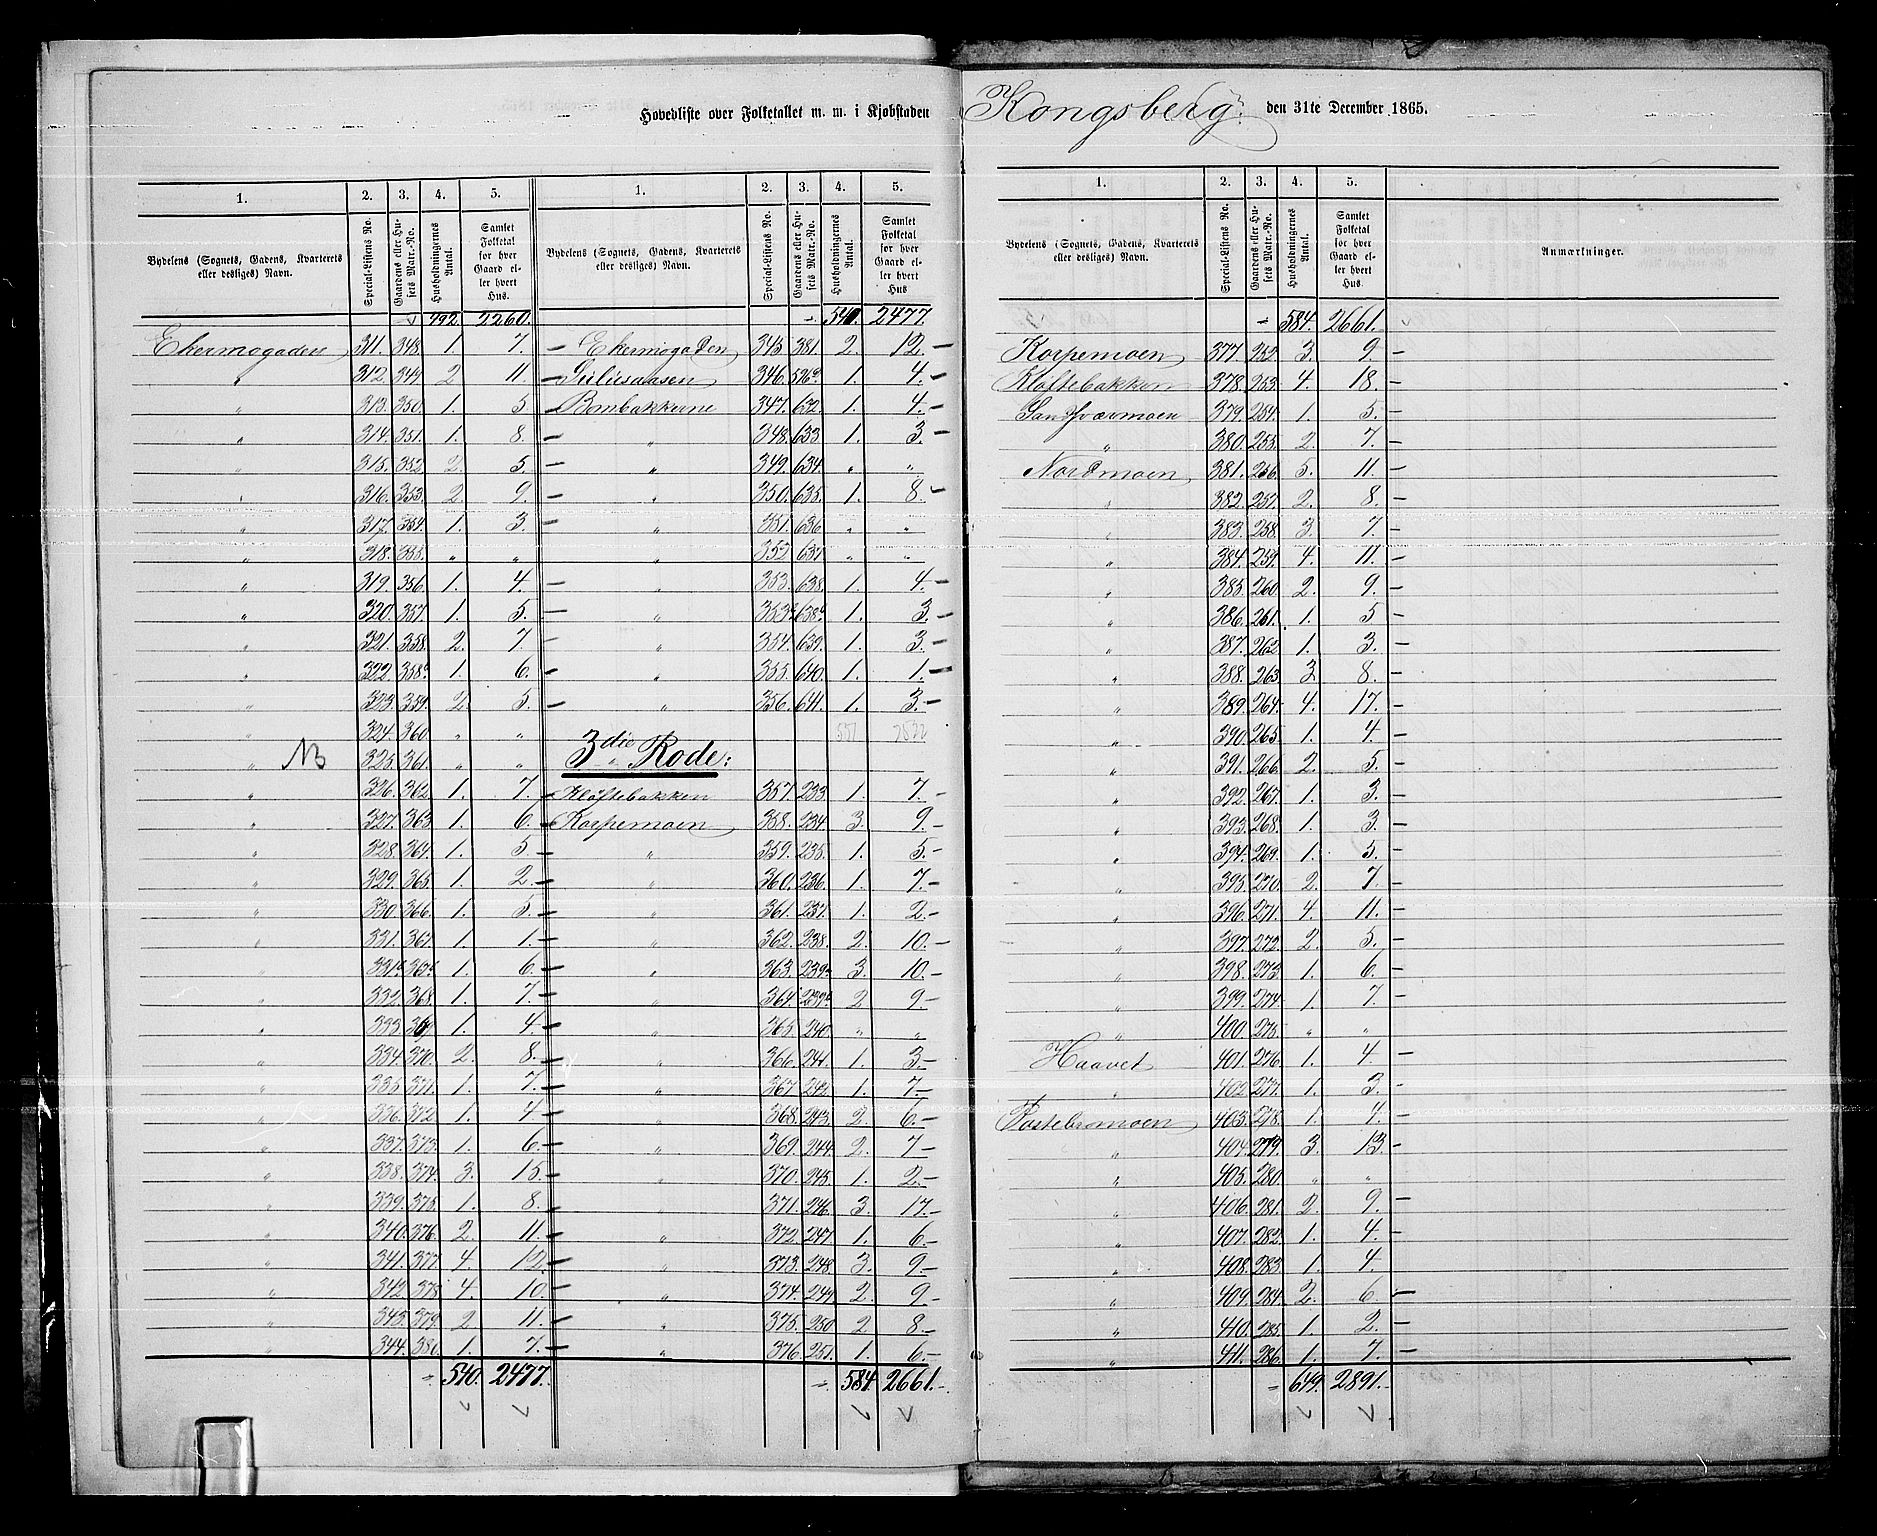 Hovedliste over Folketallet m. m. i Kjøbstaden Kongsberg. den 31te December 1865.
1. 2. 3. 4. 5. 1. 2. 3. 4. 5.
Bydelens (Sognets, Gadens, Kvarterets eller desliges) Navn. Special-Listens No. Gaardens eller Husets Matr.-No. Husholdningernes Antal. Samlet Folketal for hver Gaard eller hvert Hus. Bydelens (Sognets, Gadens, Kvarterets eller desliges) Navn. Special-Listens No. Gaardens eller Husets Matr.-No. Husholdningernes Antal. Samlet Folketal for hver Gaard eller hvert Hus.
492. 2260. 540. 2477.
Ekermogaden 311. 348. 1. 7. — Ekermogaden 345. 381. 2. 12. —
" 312. 349. 2. 11. — 346. 1. 4. —
" 313. 350. 1. 5 — Bombakkerne 347. 632. 1. 4. —
" 314. 351. 1. 8. — " 348. 633. 1. 3. —
" 315. 352. 2. 5. — " 349. 634. " "
" 316. 353. 2. 9. — " 350. 635. 1. 8. —
" 317. 354. 1. 3. — " 351. 636 " "
" 318. 355. " " " 352 637 " "
" 319. 356. 1. 4. — " 353. 638. 1. 4 —
" 320. 357. 1. 5. — " 353a 638a 1. 3. —
" 321. 358. 2. 7. — " 354. 639. 1. 3. —
" 322. 358a 1. 6. — " 355. 640. 1. 1. —
" 323. 359. 2. 5. — " 356. 641. 1. 3. —
" 324. 360 " " 557 2532
" NB 325. 361. " " 3die Rode:
" 326. 362. 1. 7. — Kløftebakken 357. 233. 1. 7. —
" 327. 363. 1. 6. — Korpemoen 358. 234. 3. 9. —
" 328. 364. 1. 5. — " 359. 235. 1. 5. —
" 329. 365. 1. 2. — " 360. 236. 1. 7. —
" 330. 366. 1. 5. — " 361. 237. 1. 2. —
" 331. 367. 1. 1. — " 362. 238. 2. 10. —
" 331a 367a 1. 6. — " 363. 239a 3. 10. —
" 332. 368. 1. 7. — " 364. 239b 2. 9 —
" 333. 369. 1. 4. — " 365. 240. " "
" 334. 370. 2. 8. — " 366. 241. 1. 3. —
" 335. 371. 1. 7. — " 367. 242. 1. 7. —
" 336. 372. 1. 4 — " 368. 243. 2. 6. —
" 337. 373. 1. 6. — " 369. 244. 2. 7 —
" 338. 374. 3. 15. — " 370. 245. 1. 2. —
" 339. 375. 1. 8. — " 371. 246. 3. 17. —
" 340. 376. 2. 11. — " 372. 247. 1. 6. —
" 341. 377. 4. 12. — " 373. 248. 3. 9. —
" 342. 378. 4. 10. — " 374. 249. 2. 9. —
" 343. 379. 2 11. — " 375. 250 2 8. —
" 344. 380. 1. 7. — " 376. 251. 1. 6. —
540. 2477. 584. 2661.
1. 2. 3. 4. 5.
Bydelens (Sognets, Gadens, Kvarterets eller desliges) Navn. Special-Listens No. Gaardens eller Husets Matr.-No. Husholdningernes Antal. Samlet Folketal for hver Gaard eller hvert Hus. Anmærkninger.
584. 2661.
Korpemoen 377. 252. 3. 9. —
Kløftebakken 378. 253. 4. 18. —
Sandsværmoen 379. 254. 1. 5. —
" 380. 255. 2. 7. —
Nordmoen 381. 256. 5. 11. —
" 382. 257. 2. 8. —
" 383. 258. 3. 7. —
" 384. 259. 4. 11. —
" 385. 260. 2. 9. —
" 386. 261. 1. 5 —
" 387. 262. 1. 3. —
" 388. 263. 3. 8. —
" 389. 264. 4. 17. —
" 390. 265. 1. 4. —
" 391. 266. 2. 5. —
" 392. 267. 1. 3. —
" 393. 268. 1. 3. —
" 394. 269. 1. 5. —
" 395. 270. 2. 7. —
" 396. 271. 4. 11. —
" 397. 272. 2. 5. —
" 398. 273. 1. 6. —
" 399. 274. 1. 7. —
" 400. 275. " "
Haavet 401. 276. 1. 4. —
" 402. 277. 1. 3. —
403. 278. 1. 4. —
" 404. 279. 3. 13. —
" 405. 280. " "
" 406. 281. 2. 9. —
" 407. 282. 1. 4. —
" 408. 283. 1. 4. —
" 409. 284. 2. 6. —
" 410. 285. 1. 2. —
" 411. 286. 1. 7. —
649. 2891.